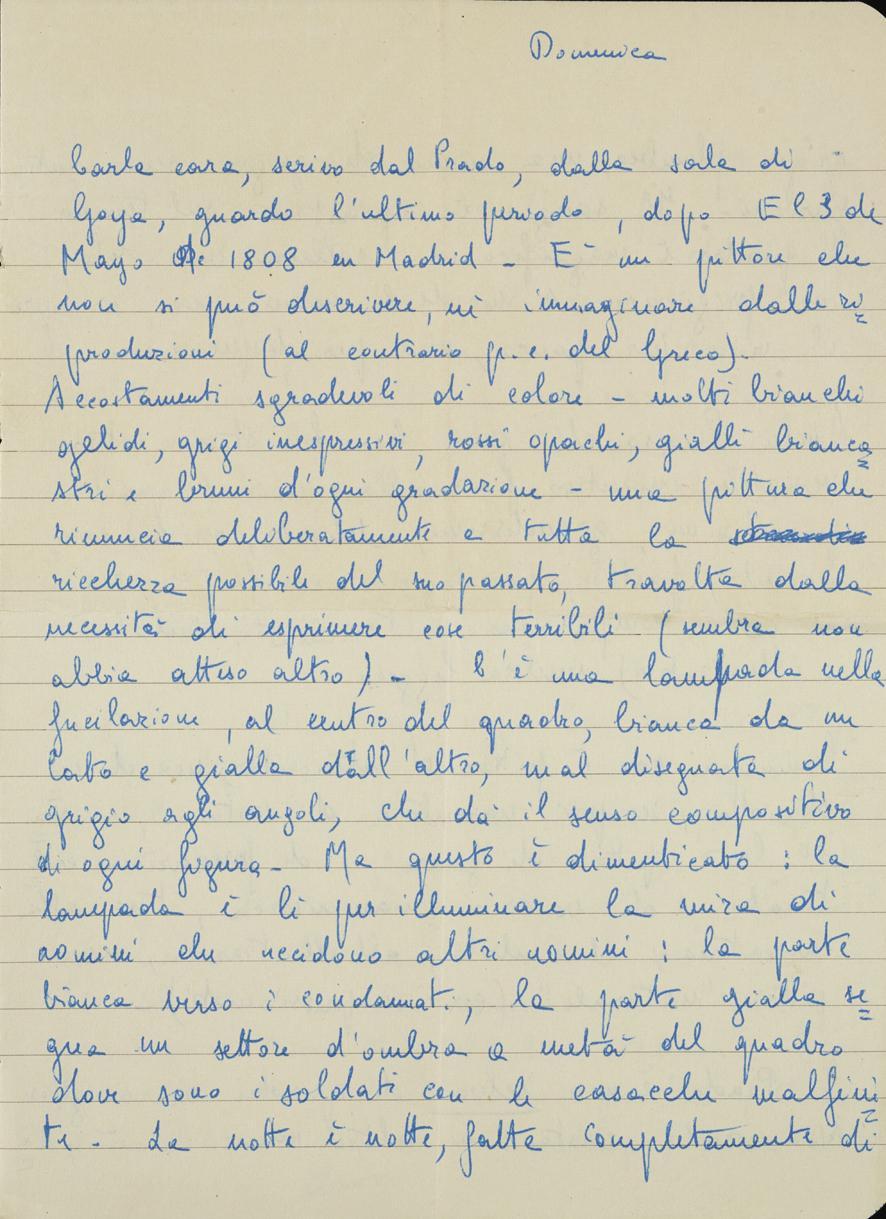 Domenica
Carla cara, scrivo dal Prado, dalla sala di
Goya, guardo l'ultimo periodo, dopo El 3 de
Mayo de 1808 en Madrid - E` un pittore che
non si può descrivere, nè immaginare dalle ri=
produzioni (al contrario p.e. del Greco).
Accostamenti sgradevoli di colore - molti bianchi
gelidi, grigi inespressivi, rossi opachi, gialli bianca=
stri e bruni d'ogni gradazione - una pittura che
rinuncia deliberatamente a tutta la
ricchezza possibile del suo passato, travolta dalla
necessità di esprimere cose terribili (sembra non
abbia atteso altro) - C'è una lampada nella
fucilazione, al centro del quadro, bianca da un
lato e gialla dall'altro, mal disegnata di
grigio agli angoli, che dà il senso compositivo
di ogni figura - Ma questo è dimenticato : la
lampada è lì per illuminare la mira di
uomini che uccidono altri uomini : la parte
bianca verso i condannati, la parte gialla se=
gna un settore d'ombra a metà del quadro
dove sono i soldati con le casacche malfini=
te - La notte è notte, fatta completamente di